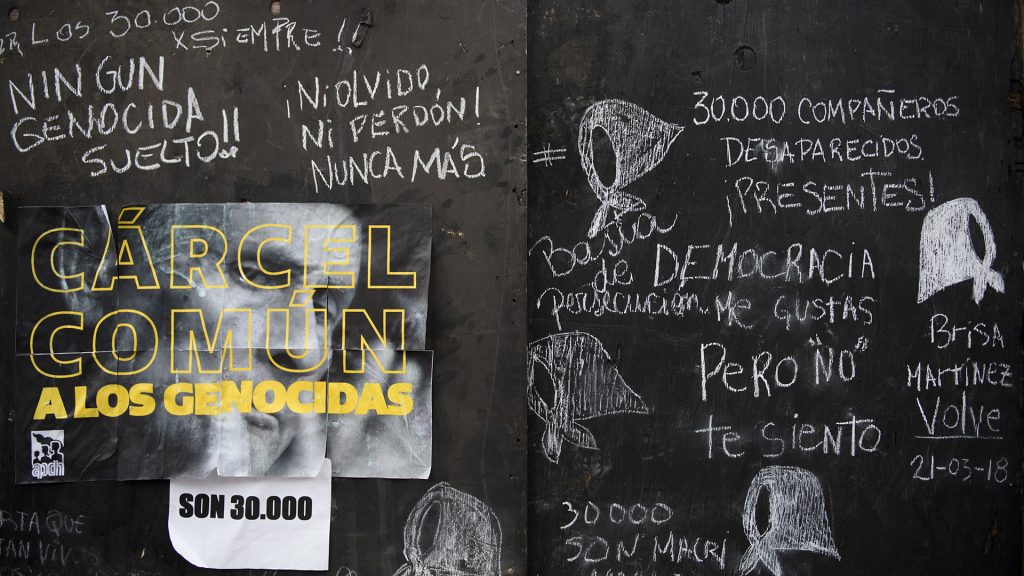 LOS 30.000
XSIEMPRE!!
NINGUN
GENOCIDA
SUELTO!!
¡NI OLVIDO,
NI PERDÓN!
NUNCA MÁS
CÁRCEL
COMÚN
A LOS GENOCIDAS
apdh
SON 30.000
QUE
#
30.000 COMPAÑEROS
DESAPARECIDOS.
¡PRESENTES!
Basta
de
persecución
DEMOCRACIA
ME GUSTAS
PERO "NO"
te siento
BrisA
MARTÍNEZ
Volve
21-03-18.
30000
SON MACRI